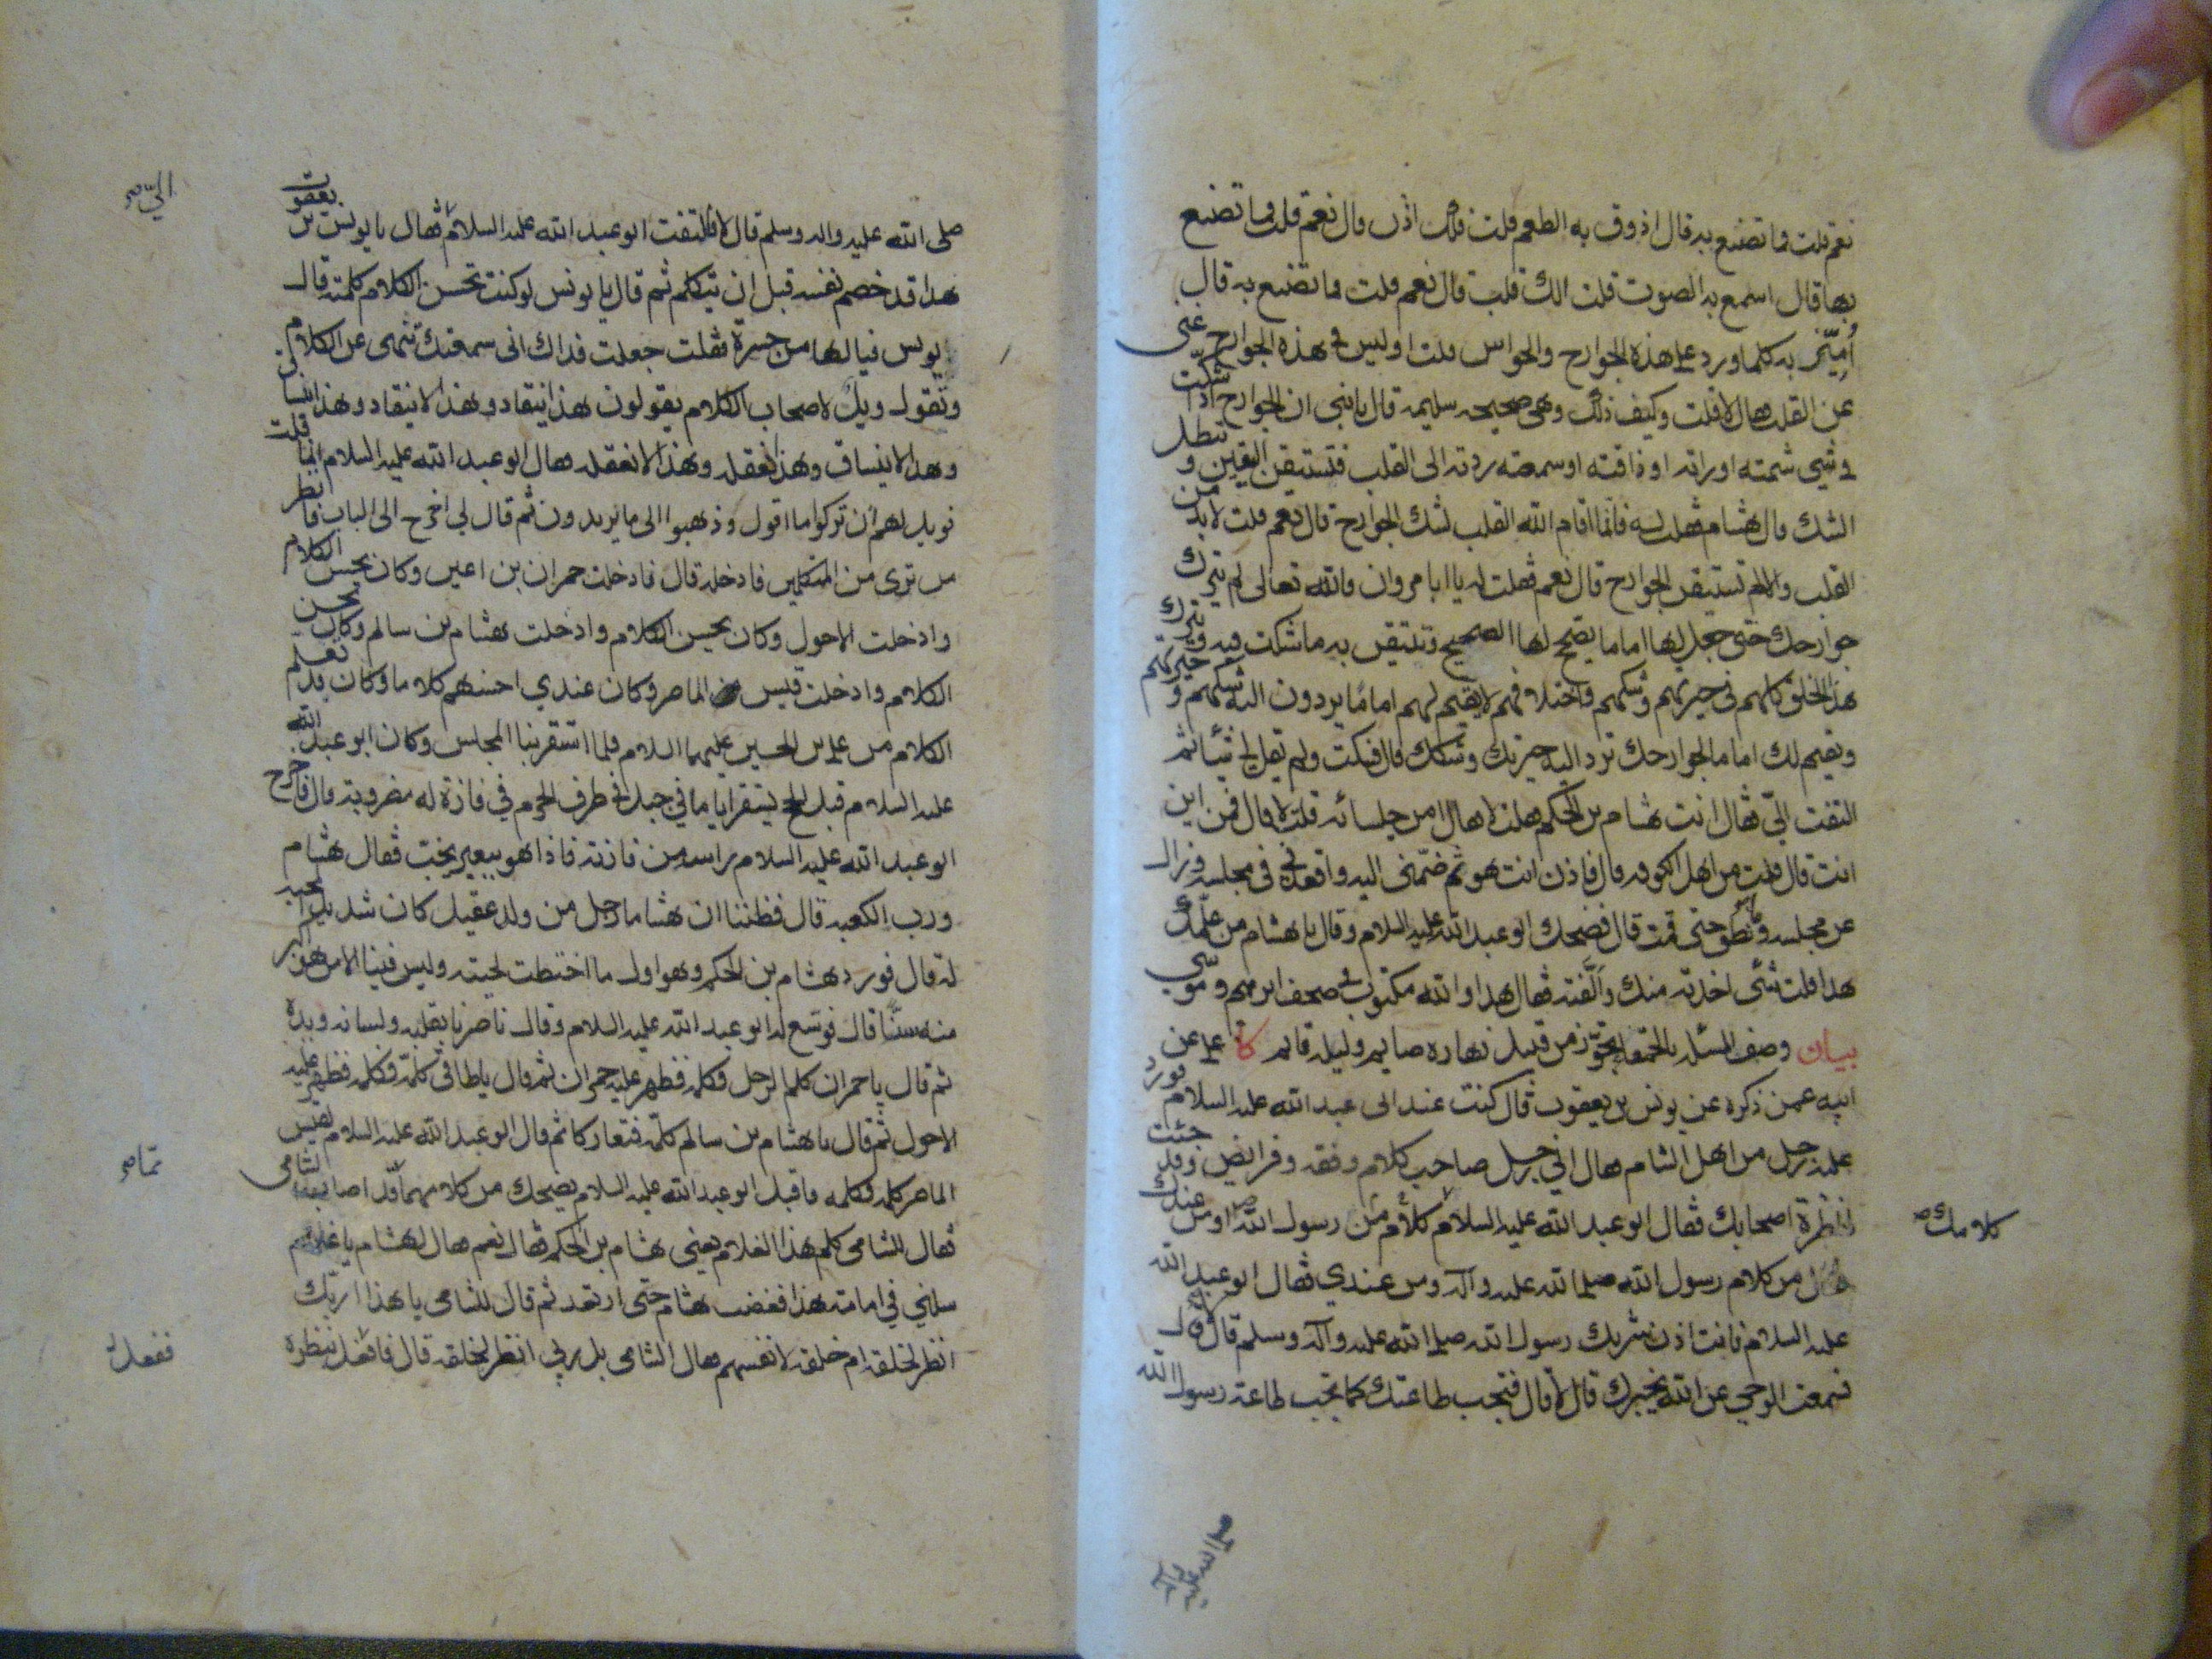 نعم قلت فما تصنع به قال اذوق به الطعم قلت فلك اذن قال نعم قلت فما تصنع
بها قال اسمع به الصوت قلت الك قلب قال نعم قلت فما تصنع به قال
اميّز به كلما ورد على هذه الجوارح والحواس قلت اوليس في هذه الجوارح غنى
عن القلب فقال لا قلت وكيف ذلك وهي صحيحه سليمه قال يا بني ان الجوارح اذا شكت
في شيء شمته او راته او ذاقته او سمعته ردته الى القلب فتستيقن اليقين و تبطل
الشك قال هشام فقلت له فانما اقام الله القلب لشك الجوارح قال نعم قلت لا بد من
القلب والا لم تستيقن الجوارح قال نعم فقلت له يا ابا مروان فالله تعالى لم يترك
جوارحك حتى جعل لها اماما يصحح لها الصحيح وتتيقن به ما شكت فيه و يترك
هذا الخلق كلهم في حيرتهم وشكهم واختلافهم لا يقيم لهم اماما يردون اليه شكهم و حيرتهم
ويقيم لك اماما لجوارحك ترد اليه حيرتك وشكك قال فسكت ولم يقل لي شيئا ثم
التفت اليّ فقال انت هشام بن الحكم فقلت لا فقال امن جلسائه قلت لا قال فمن اين
انت قال قلت من اهل الكوفه قال فاذن انت هو ثم ضمّني اليه واقعدني في مجلسه وزال
عن مجلسه وما نطق حتى قمت قال فضحك ابو عبد الله عليه السلام وقال يا هشام من علّمك
هذا قلت شئى اخذته منك والّفته فقال هذا والله مكتوب في صحف ابرهيم وموسى
بيان وصف الليله بالجمعه تجوّز من قبيل نهاره صايم وليله قايم كا على عن
ابيه عمن ذكره عن يونس بن يعقوب قال كنت عند ابي عبد الله عليه السلام فورد
عليه رجل من اهل الشام فقال اني رجل صاحب كلام وفقه وفرايض وقد جئت
لمناظرة اصحابك فقال ابو عبد الله عليه السلام كلامك من رسول الله او من عندك
كلامك ص
فقال من كلام رسول الله صلى الله عليه وآله ومن عندي فقال ابو عبد الله
عليه السلام فانت اذن شريك رسول الله صلى الله عليه وآله وسلم قال لا قال
فسمعت الوحي عن الله يخبرك قال لا قال فتجب طاعتك كما تجب طاعة رسول الله
صلى الله عليه واله وسلم قال لا فالتفت ابو عبد الله عليه السلام فقال يا يونس بن يعقوب
اليّ ص
هذا قد خصم نفسه قبل ان يتكلم ثم قال يا يونس لو كنت تحسن الكلام كلمته قال
يونس فيا لها من حسرة فقلت جعلت فداك اني سمعتك تنهى عن الكلام
وتقول ويل لاصحاب الكلام يقولون هذا ينقاد وهذا لا ينقاد وهذا ينساق
وهذا لا ينساق وهذا نعقله وهذا لا نعقله فقال ابو عبد الله عليه السلام انما قلت
فويل لهم ان تركوا ما اقول وذهبوا الى ما يريدون ثم قال لي اخرج الى الباب فانظر
من ترى من المتكلمين فادخله قال فادخلت حمران بن اعين وكان يحسن الكلام
وادخلت الاحول وكان يحسن الكلام وادخلت هشام بن سالم وكان يحسن
الكلام وادخلت قيس الماصر وكان عندي احسنهم كلاما وكان قد تعلم
الكلام من على بن الحسين عليهما السلام فلما استقر بنا المجلس وكان ابو عبد الله
عليه السلام قبل الحج يستقر اياما في جبل في طرف الحرم في فازة له مضروبة قال فاخرج
ابو عبد الله عليه السلام راسه من فازته فاذا هو ببعير يخبّ فقال هشام
ورب الكعبه قال فظننا ان هشاما رجل من ولد عقيل كان شديد المحبه
له قال فورد هشام بن الحكم وهو اول ما اختطت لحيته وليس فينا الا من هو اكبر
منه سنّا قال فوسّع له ابو عبد الله عليه السلام وقال ناصرنا بقلبه ولسانه ويده
ثم قال يا حمران كلم الرجل فكلمه فظهر عليه حمران ثم قال يا طاقى كلمه فكلمه فظهر عليه
الاحول ثم قال يا هشام بن سالم كلّمه فتعاركا ثم قال ابو عبد الله عليه السلام لقيس
الماصر كلمه فكلمه فاقبل ابو عبد الله عليه السلام يضحك من كلامهما قد اصاب الشامى
مما ص
فقال للشامى كلم هذا الغلام يعني هشام بن الحكم فقال نعم فقال لهشام يا غلام
سلني في امامة هذا فغضب هشام حتى ارتعد ثم قال للشامى يا هذا اربّك
انظر لخلقه ام خلقه لانفسهم فقال الشامى بل ربي انظر لخلقه قال فافعل بنظره
ففعل